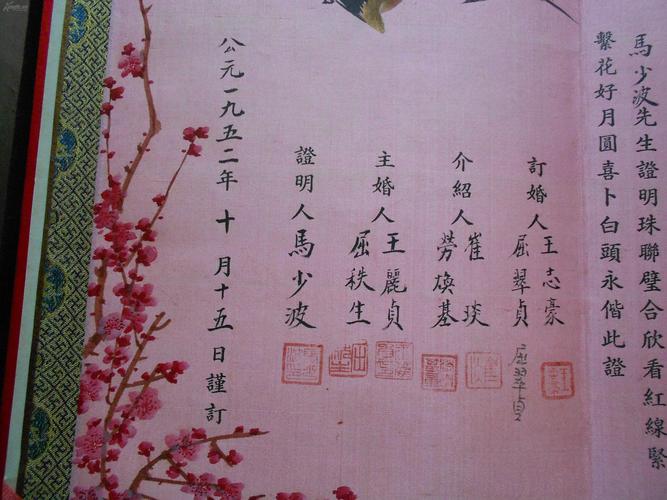 馬少波先生證明珠聯璧合欣看紅線緊
繫花好月圓喜卜白頭永偕此證
訂婚人 王志豪
屈翠貞
屈翠貞
介紹人 崔琰
勞煥基
主婚人 王麗貞
屈秩生
證明人 馬少波
公元一九五二年 十 月十五日謹訂